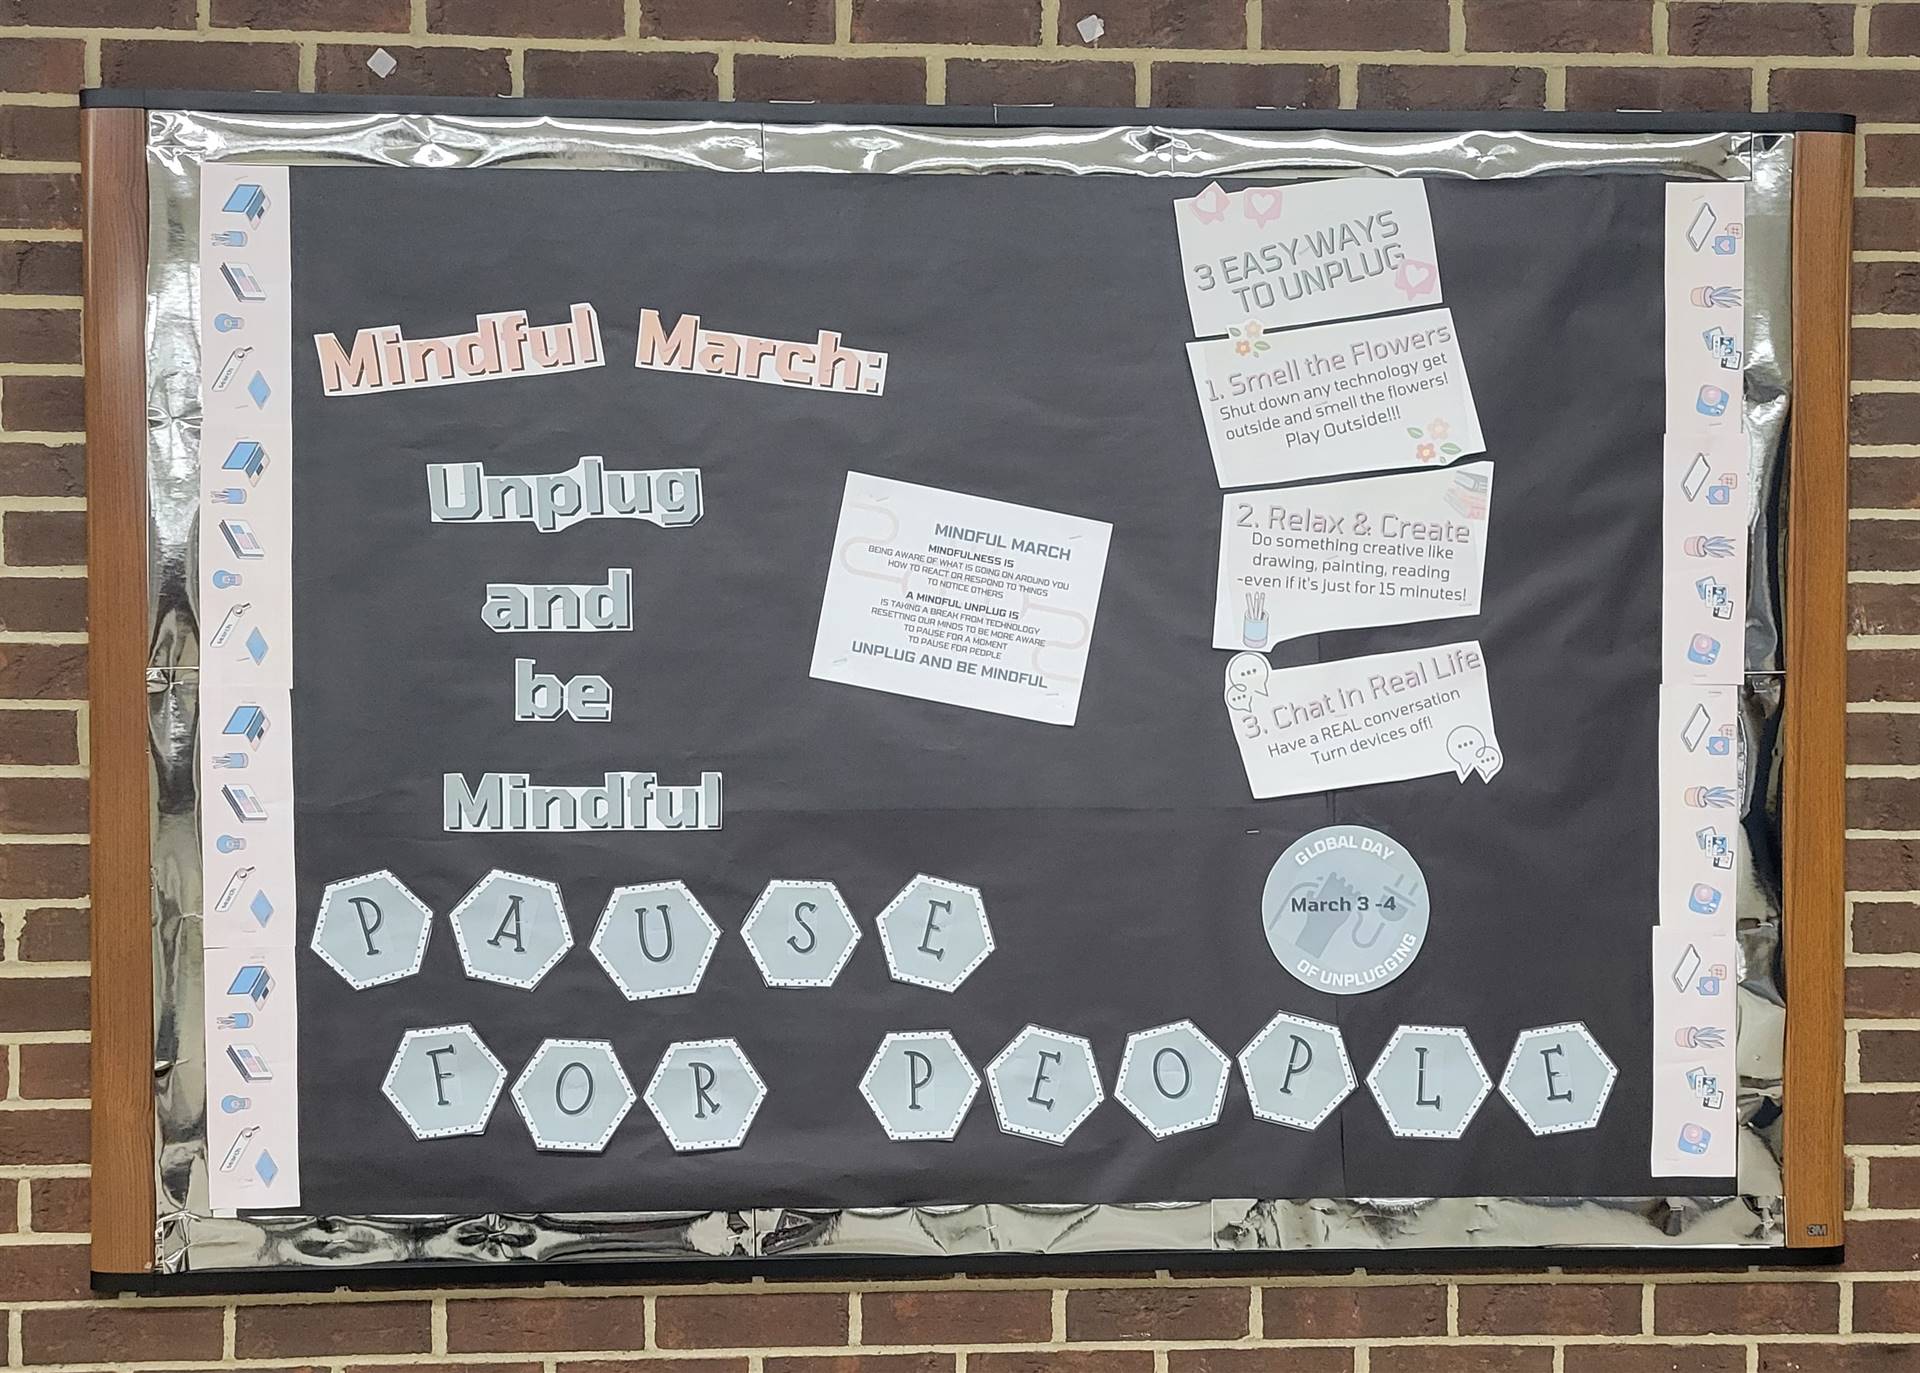 Mindful March:
Unplug
and
be
Mindful
MINDFUL MARCH
MINDFULNESS IS
BEING AWARE OF WHAT IS GOING ON AROUND YOU
HOW TO REACT OR RESPOND TO THINGS
TO NOTICE OTHERS
A MINDFUL UNPLUG IS
IS TAKING A BREAK FROM TECHNOLOGY
RESETTING OUR MINDS TO BE MORE AWARE
TO PAUSE FOR A MOMENT
TO PAUSE FOR PEOPLE
UNPLUG AND BE MINDFUL
3 EASY WAYS
TO UNPLUG
1. Smell the Flowers
Shut down any technology get
outside and smell the flowers!
Play Outside!!!
2. Relax & Create
Do something creative like
drawing, painting, reading
-even if it's just for 15 minutes!
3. Chat in Real Life
Have a REAL conversation
Turn devices off!
GLOBAL DAY
March 3 -4
OF UNPLUGGING
PAUSE
FOR PEOPLE
search
search
search
search
3M